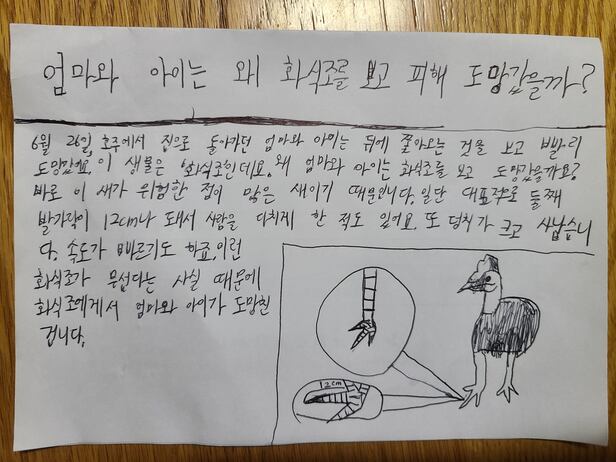 엄마와 아이는 왜 화식조를 보고 피해 도망갔을까?
6월 26일, 호주에서 집으로 돌아가던 엄마와 아이는 뒤에 쫓아오는 것을 보고 빨리
도망갔어요. 이 생물은 '화식조'인데요. 왜 엄마와 아이는 화식조를 보고 도망갔을까요?
바로 이 새가 위험한 점이 많은 새이기 때문입니다. 일단 대표적으로 둘째
발가락이 12cm나 돼서 사람을 다치게 한 적도 있어요. 또 덩치가 크고 사납습니
다. 속도가 빠르기도 하죠. 이런
화식조가 무섭다는 사실 때문에
화식조에게서 엄마와 아이가 도망친
겁니다.
12cm